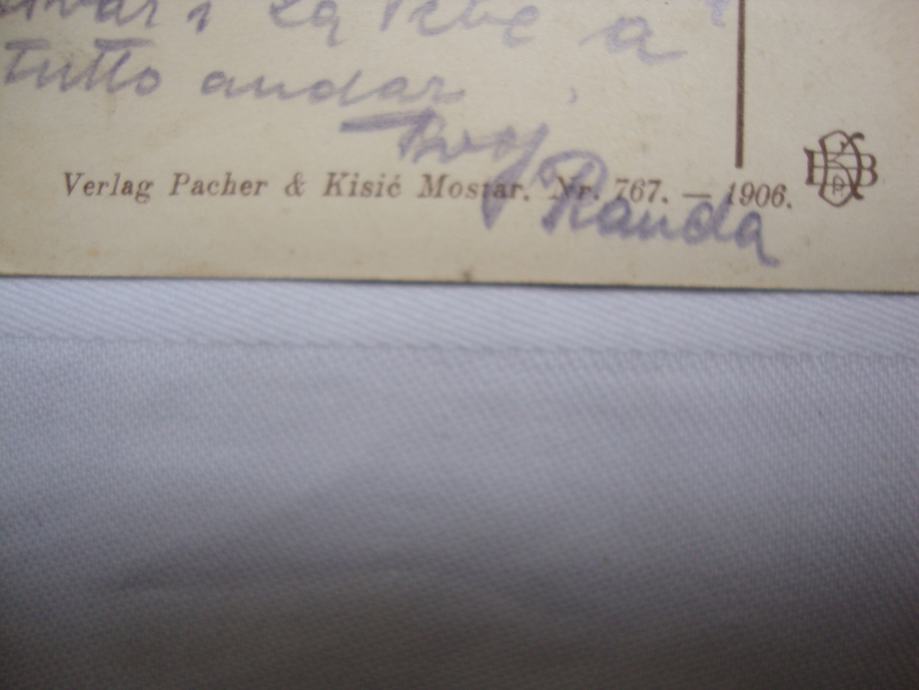 i za tebe a
tutto andar
Tvoj
Randa
Verlag Pacher & Kisić Mostar. Nr. 767. — 1906.